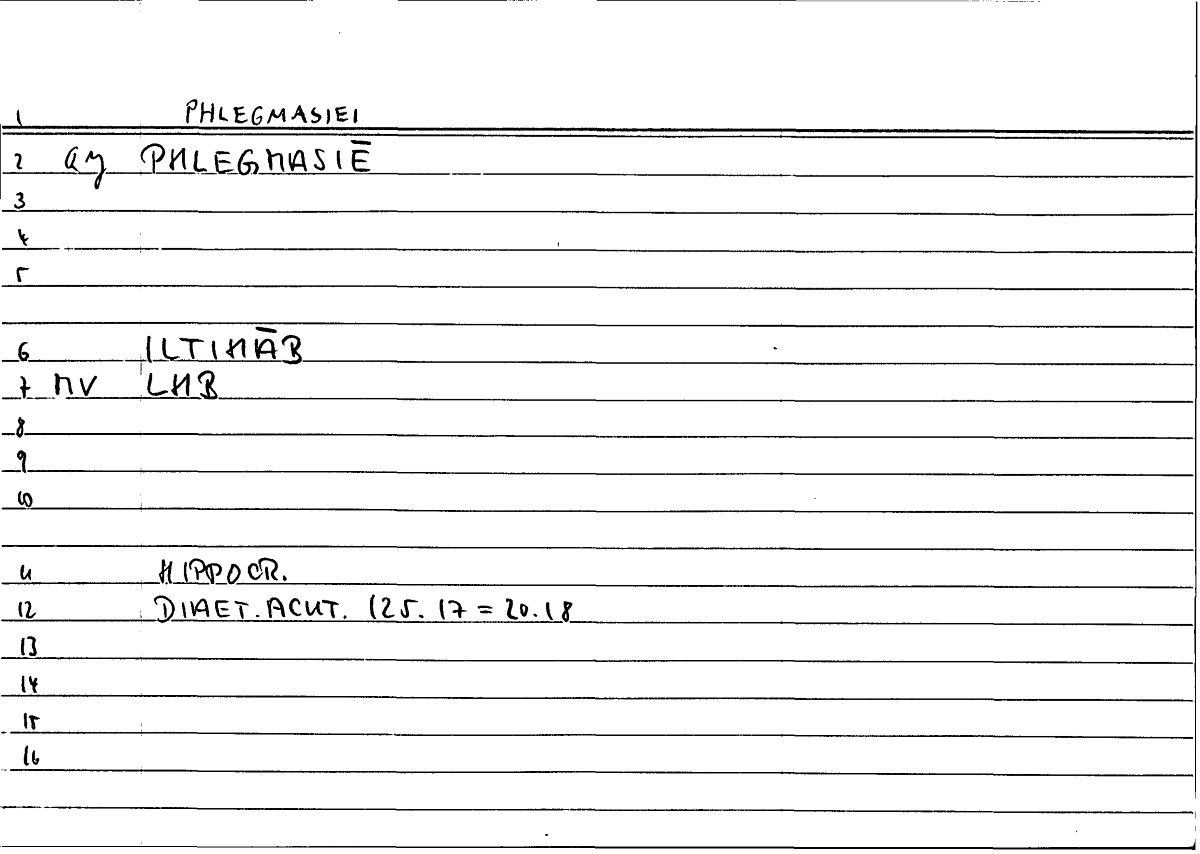 1 PHLEGMASIEI
2 ay PHLEGMASIĒ
3
4
5
6 ILTIHĀB
7 MV LHB
8
9
10
11 HIPPOCR.
12 DIAET.ACUT. 125.17 = 20.18
13
14
15
16